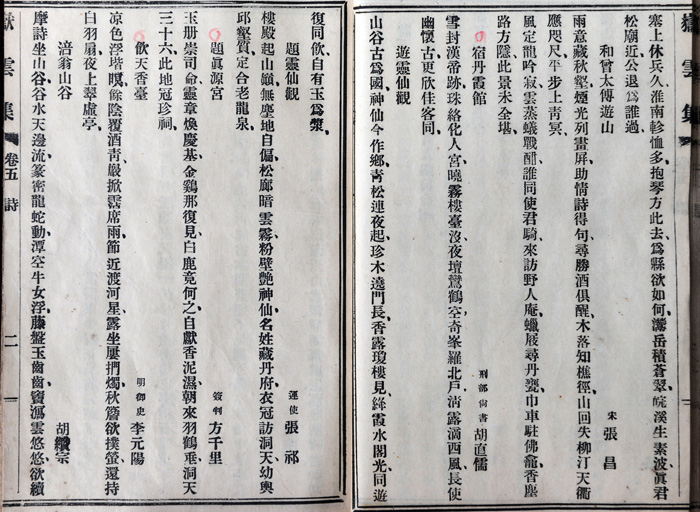 雲集
塞上休兵久淮南軫恤多抱琴方此去爲縣欲如何灊岳積蒼翠皖溪生素波眞君
松廟近公退爲誰過
和曾太傅遊山 宋 張昌
兩意藏秋壑煙光列畫屏助情詩得句尋勝酒俱醒木落知樵徑山回失柳汀天衢
應咫尺平步上靑冥
風定龍吟寂雲蒸蟻戰酣誰同使君騎來訪野人庵蠟屐尋丹甕巾車駐佛龕香塵
路方隱此景未全堪
宿丹霞館 刑部尙書 胡直儒
雪封漢帝跡珠絡化人宮曉霧樓臺沒夜壇鸞鶴空奇峯羅北戶淸露滴西風長使
幽懷古更欣佳客同
遊靈仙觀
山谷古爲國神仙今作鄉靑松連夜起珍木遶門長香露瓊樓見絳霞水閣光同遊
復同飮自有玉爲漿
題靈仙觀 運使 張祁
樓殿起山巓無塵地自偏松廊暗雲霧粉壁艷神仙名姓藏丹府衣冠訪洞天幼輿
邱壑質定合老龍泉
題眞源宮 簽判 方千里
玉册崇司命靈章煥慶基金鷄那復見白鹿竟何之自獻香泥濕朝來羽鶴垂洞天
三十六此地冠珍祠
飮天香臺 明御史 李元陽
凉色浮塔暝餘陰覆酒靑嚴掀霑席雨節近渡河星露坐屢捫燭秋簷欲撲螢還持
白羽扇夜上翠虛亭
涪翁山谷 胡纘宗
摩詩坐山谷谷水天邊流篆密龍蛇動潭空牛女浮藤盤玉齒齒竇瀉雲悠悠欲續
雲集 卷五 詩 二